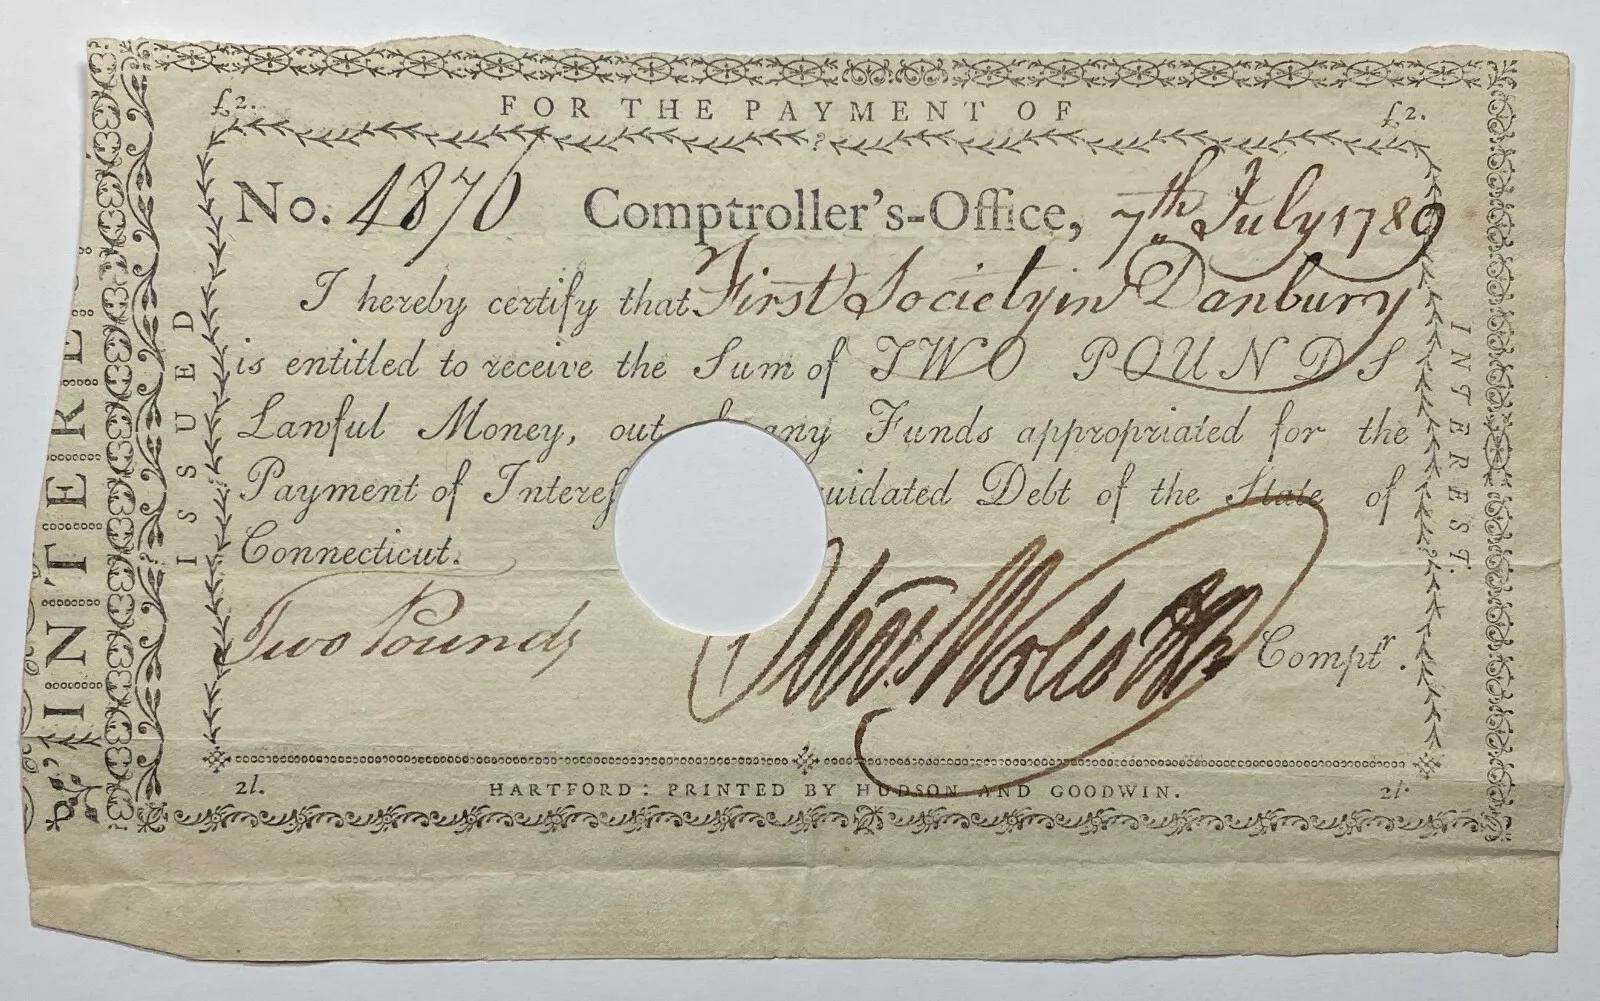 £2. FOR THE PAYMENT OF £2.
No. 4876 Comptroller's-Office, 7th July 1789
I hereby certify that First Society in Danbury
is entitled to receive the Sum of TWO POUNDS
Lawful Money, out any Funds appropriated for the
Payment of Interes uidated Debt of the State of
Connecticut.
Two Pounds
Oliv Wolcott Jr Comptr.
2l. HARTFORD: PRINTED BY HUDSON AND GOODWIN. 2l.
ISSUED
INTEREST.
INTERE